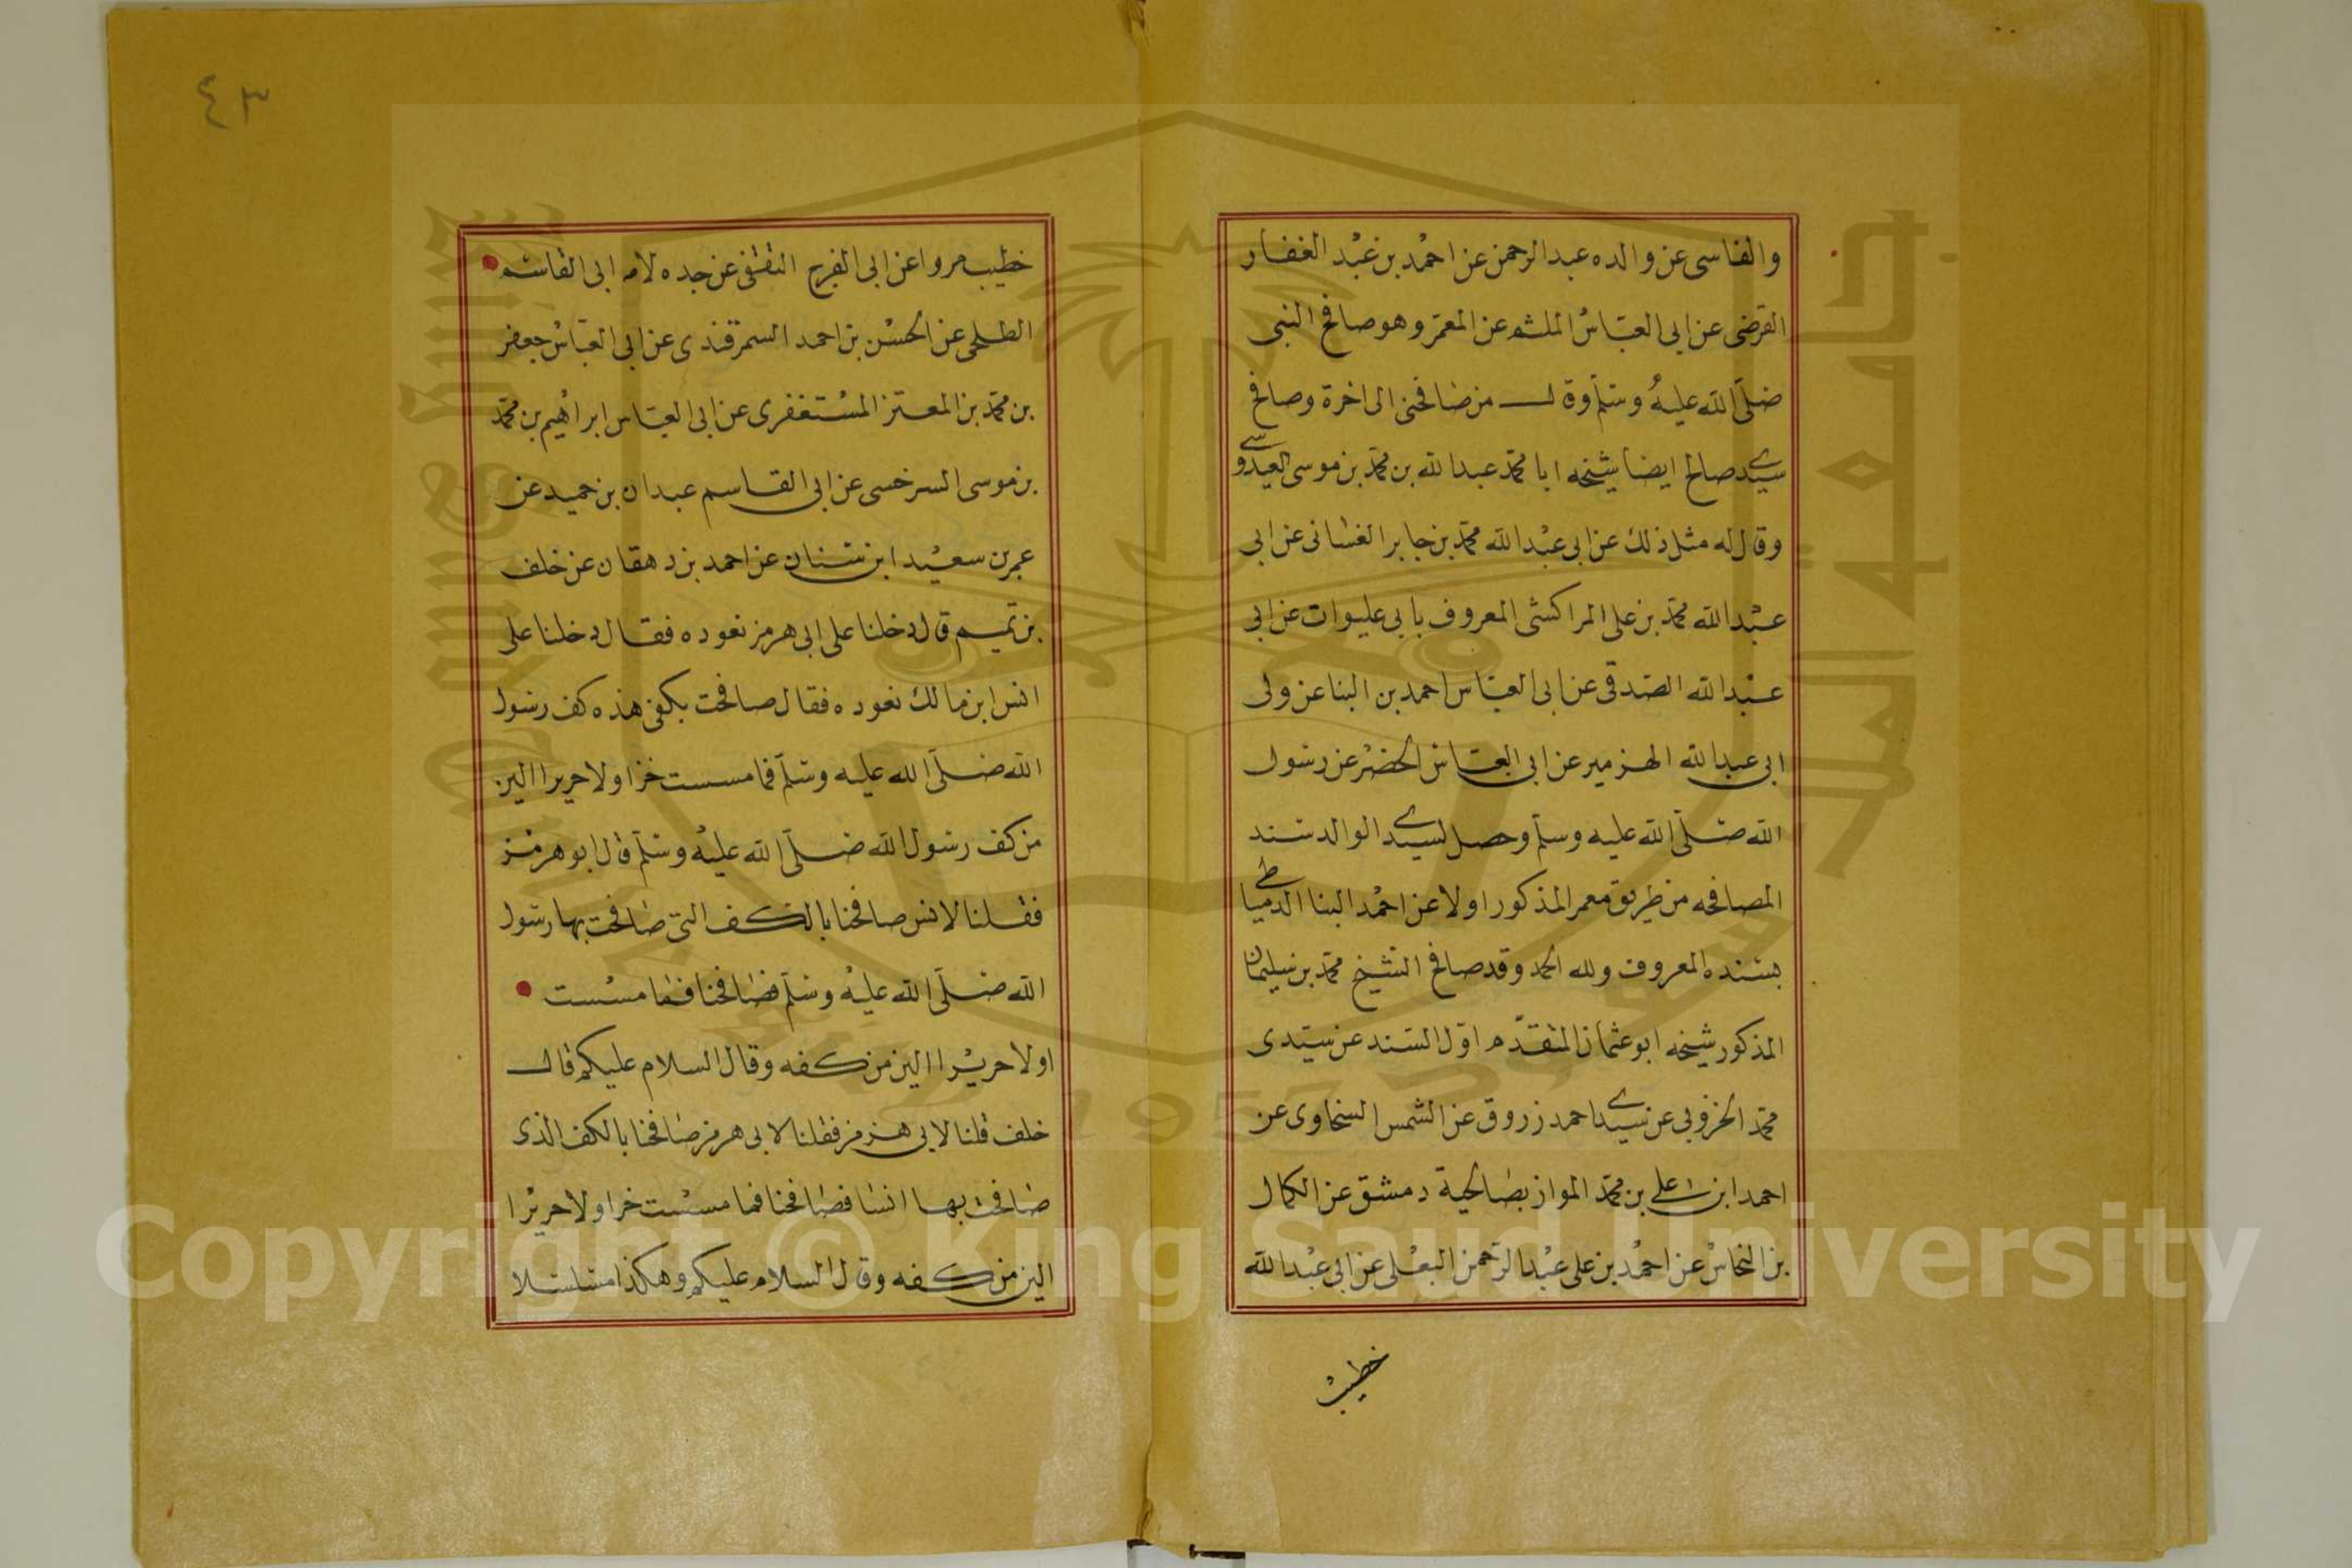 والفاسى عن والده عبد الرحمن عن احمد بن عبد الغفار
القرضى عن ابى العباس الملثم عن المعمر وهو صافح النبى
صلى الله عليه وسلم وقال من صافحنى الى اخره وصافح
سيدى صالح ايضا شيخه ابا محمد عبد الله بن محمد بن موسى العبدوسى
وقال له مثل ذلك عن ابى عبد الله محمد بن جابر الغسانى عن ابى
عبد الله محمد بن على المراكشى المعروف بابى عليوات عن ابى
عبد الله الصدقى عن ابى العباس احمد بن البنا عن ولى
ابى عبد الله الهزمير عن ابى العباس الخضر عن رسول
الله صلى الله عليه وسلم وحصل لسيدى الوالد سند
المصافحه من طريق معمر المذكور اولا عن احمد البنا الدمياطى
بسنده المعروف ولله الحمد وقد صافح الشيخ محمد بن سليمان
المذكور شيخه ابو عثمان المتقدم اول السند عن سيدى
محمد الخزوبى عن سيدى احمد زروق عن الشمس السخاوى عن
احمد ابن على بن محمد المواز بصالحية دمشق عن الكمال
بن النحاس عن احمد بن على عبد الرحمن البعلى عن ابى عبد الله
خطيب
٤٣
خطيب مروا عن ابى الفرج الثقفى عن جده لامه ابى القاسم
الطلحى عن الحسن بن احمد السمرقندى عن ابى العباس جعفر
بن محمد بن المعتز المستغفرى عن ابى العباس ابراهيم بن محمد
بن موسى السرخسى عن ابى القاسم عبدان بن حميد عن
عمر بن سعيد ابن سنان عن احمد بن دهقان عن خلف
بن تميم قال دخلنا على ابى هرمز نعوده فقال دخلنا على
انس ابن مالك نعوده فقال صافحت بكفى هذه كف رسول
الله صلى الله عليه وسلم فما مسست خزا ولا حريرا الين
من كف رسول الله صلى الله عليه وسلم قال ابو هرمز
فقلنا لانس صافحنا بالكف التى صافحت بها رسول
الله صلى الله عليه وسلم فصافحنا فما مسست
او لا حريرا الين من كفه وقال السلام عليكم قال
خلف قلنا لابى هرمز فقلنا لابى هرمز صافحنا بالكف الذى
صافحت بها انسا فصافحنا فما مسست خزا ولا حريرا
الين من كفه وقال السلام عليكم وهكذا متسلسلا
Copyright © King Saud University
1957